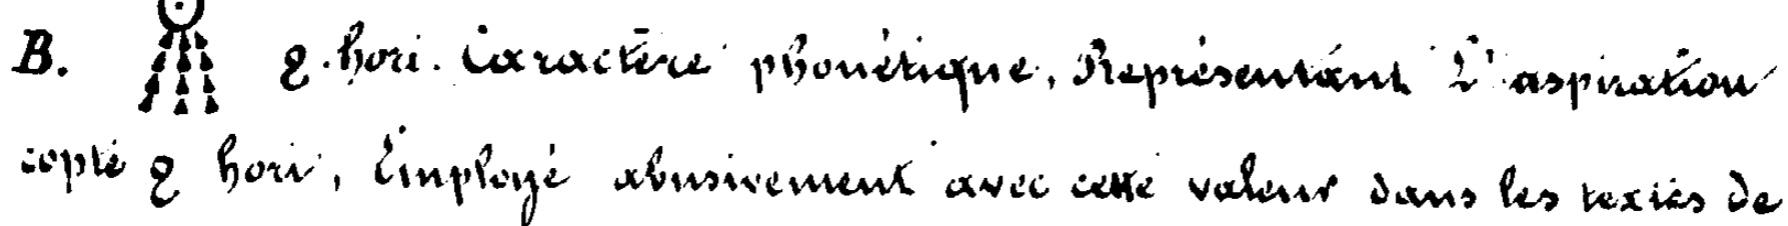 B. 𓇶 ϩ. hori. Caractère phonétique, Représentant L'aspiration
copte ϩ hori, Employé abusivement avec cette valeur dans les textes de